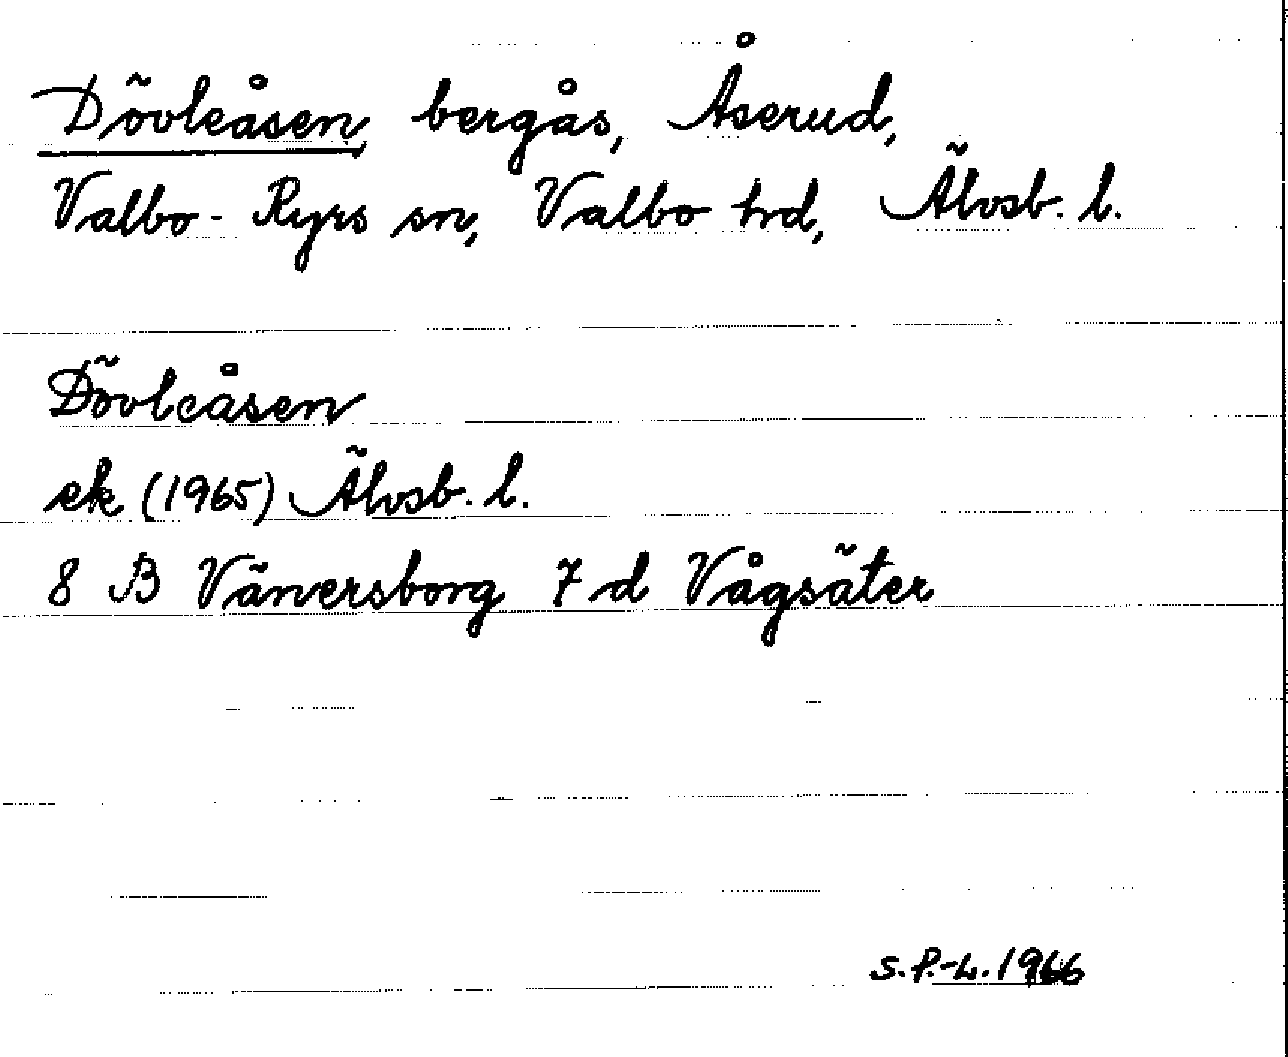 Dövleåsen, bergås, Åserud,
Valbo-Ryrs sn, Valbo hd, Älvsb. l.
Dövleåsen
ek (1965) Älvsb. l.
8 B Vänersborg 7 d Vågsäter
S.P.-L. 1966